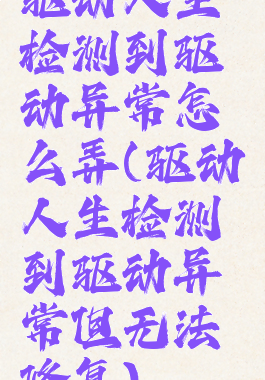 驱动人生
检测到驱
动异常怎
么弄(驱动
人生检测
到驱动异
常但无法
修复)